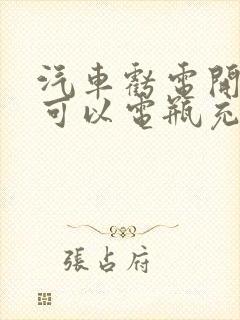 汽車虧電開
可以電瓶充
張占府